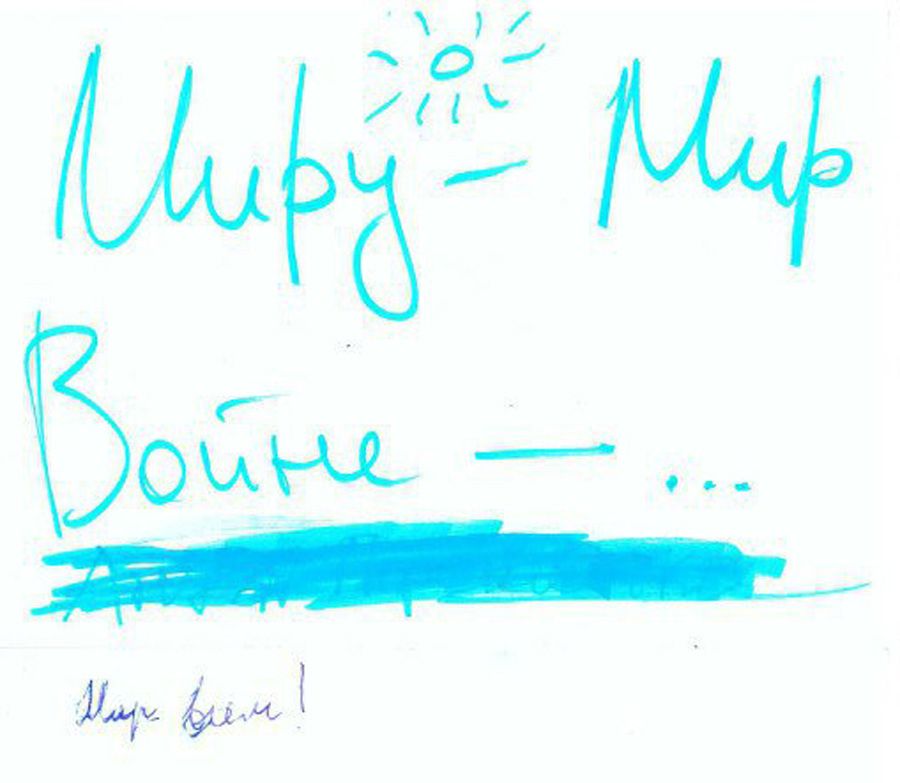 Миру - Мир
Войне - ...
Мир всем!